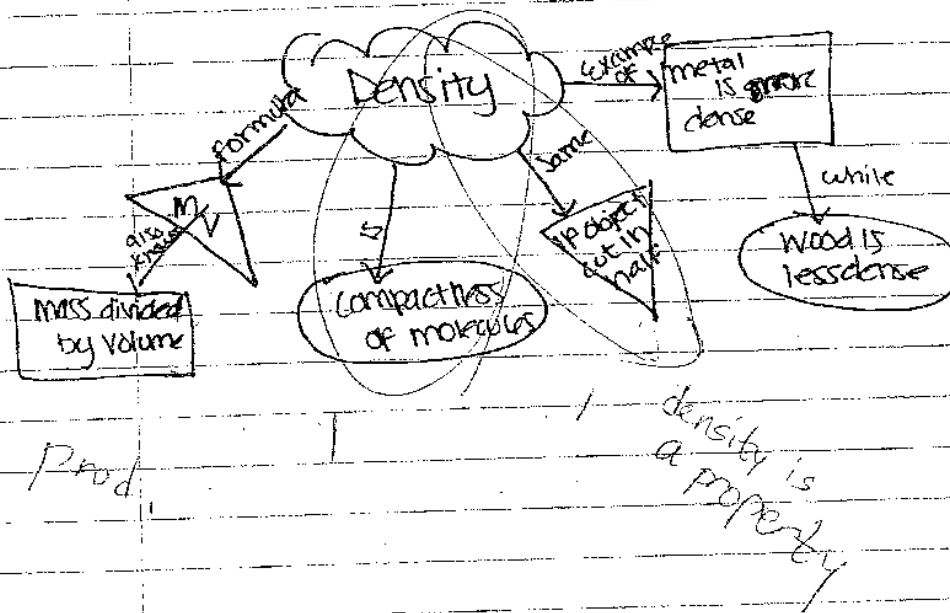 Density
formula
M/V
also
known
mass divided
by volume
is
compactness
of molecules
same
if object
cut in
half
example
of
metal
is more
dense
while
wood is
less dense
Prod
density is
a property